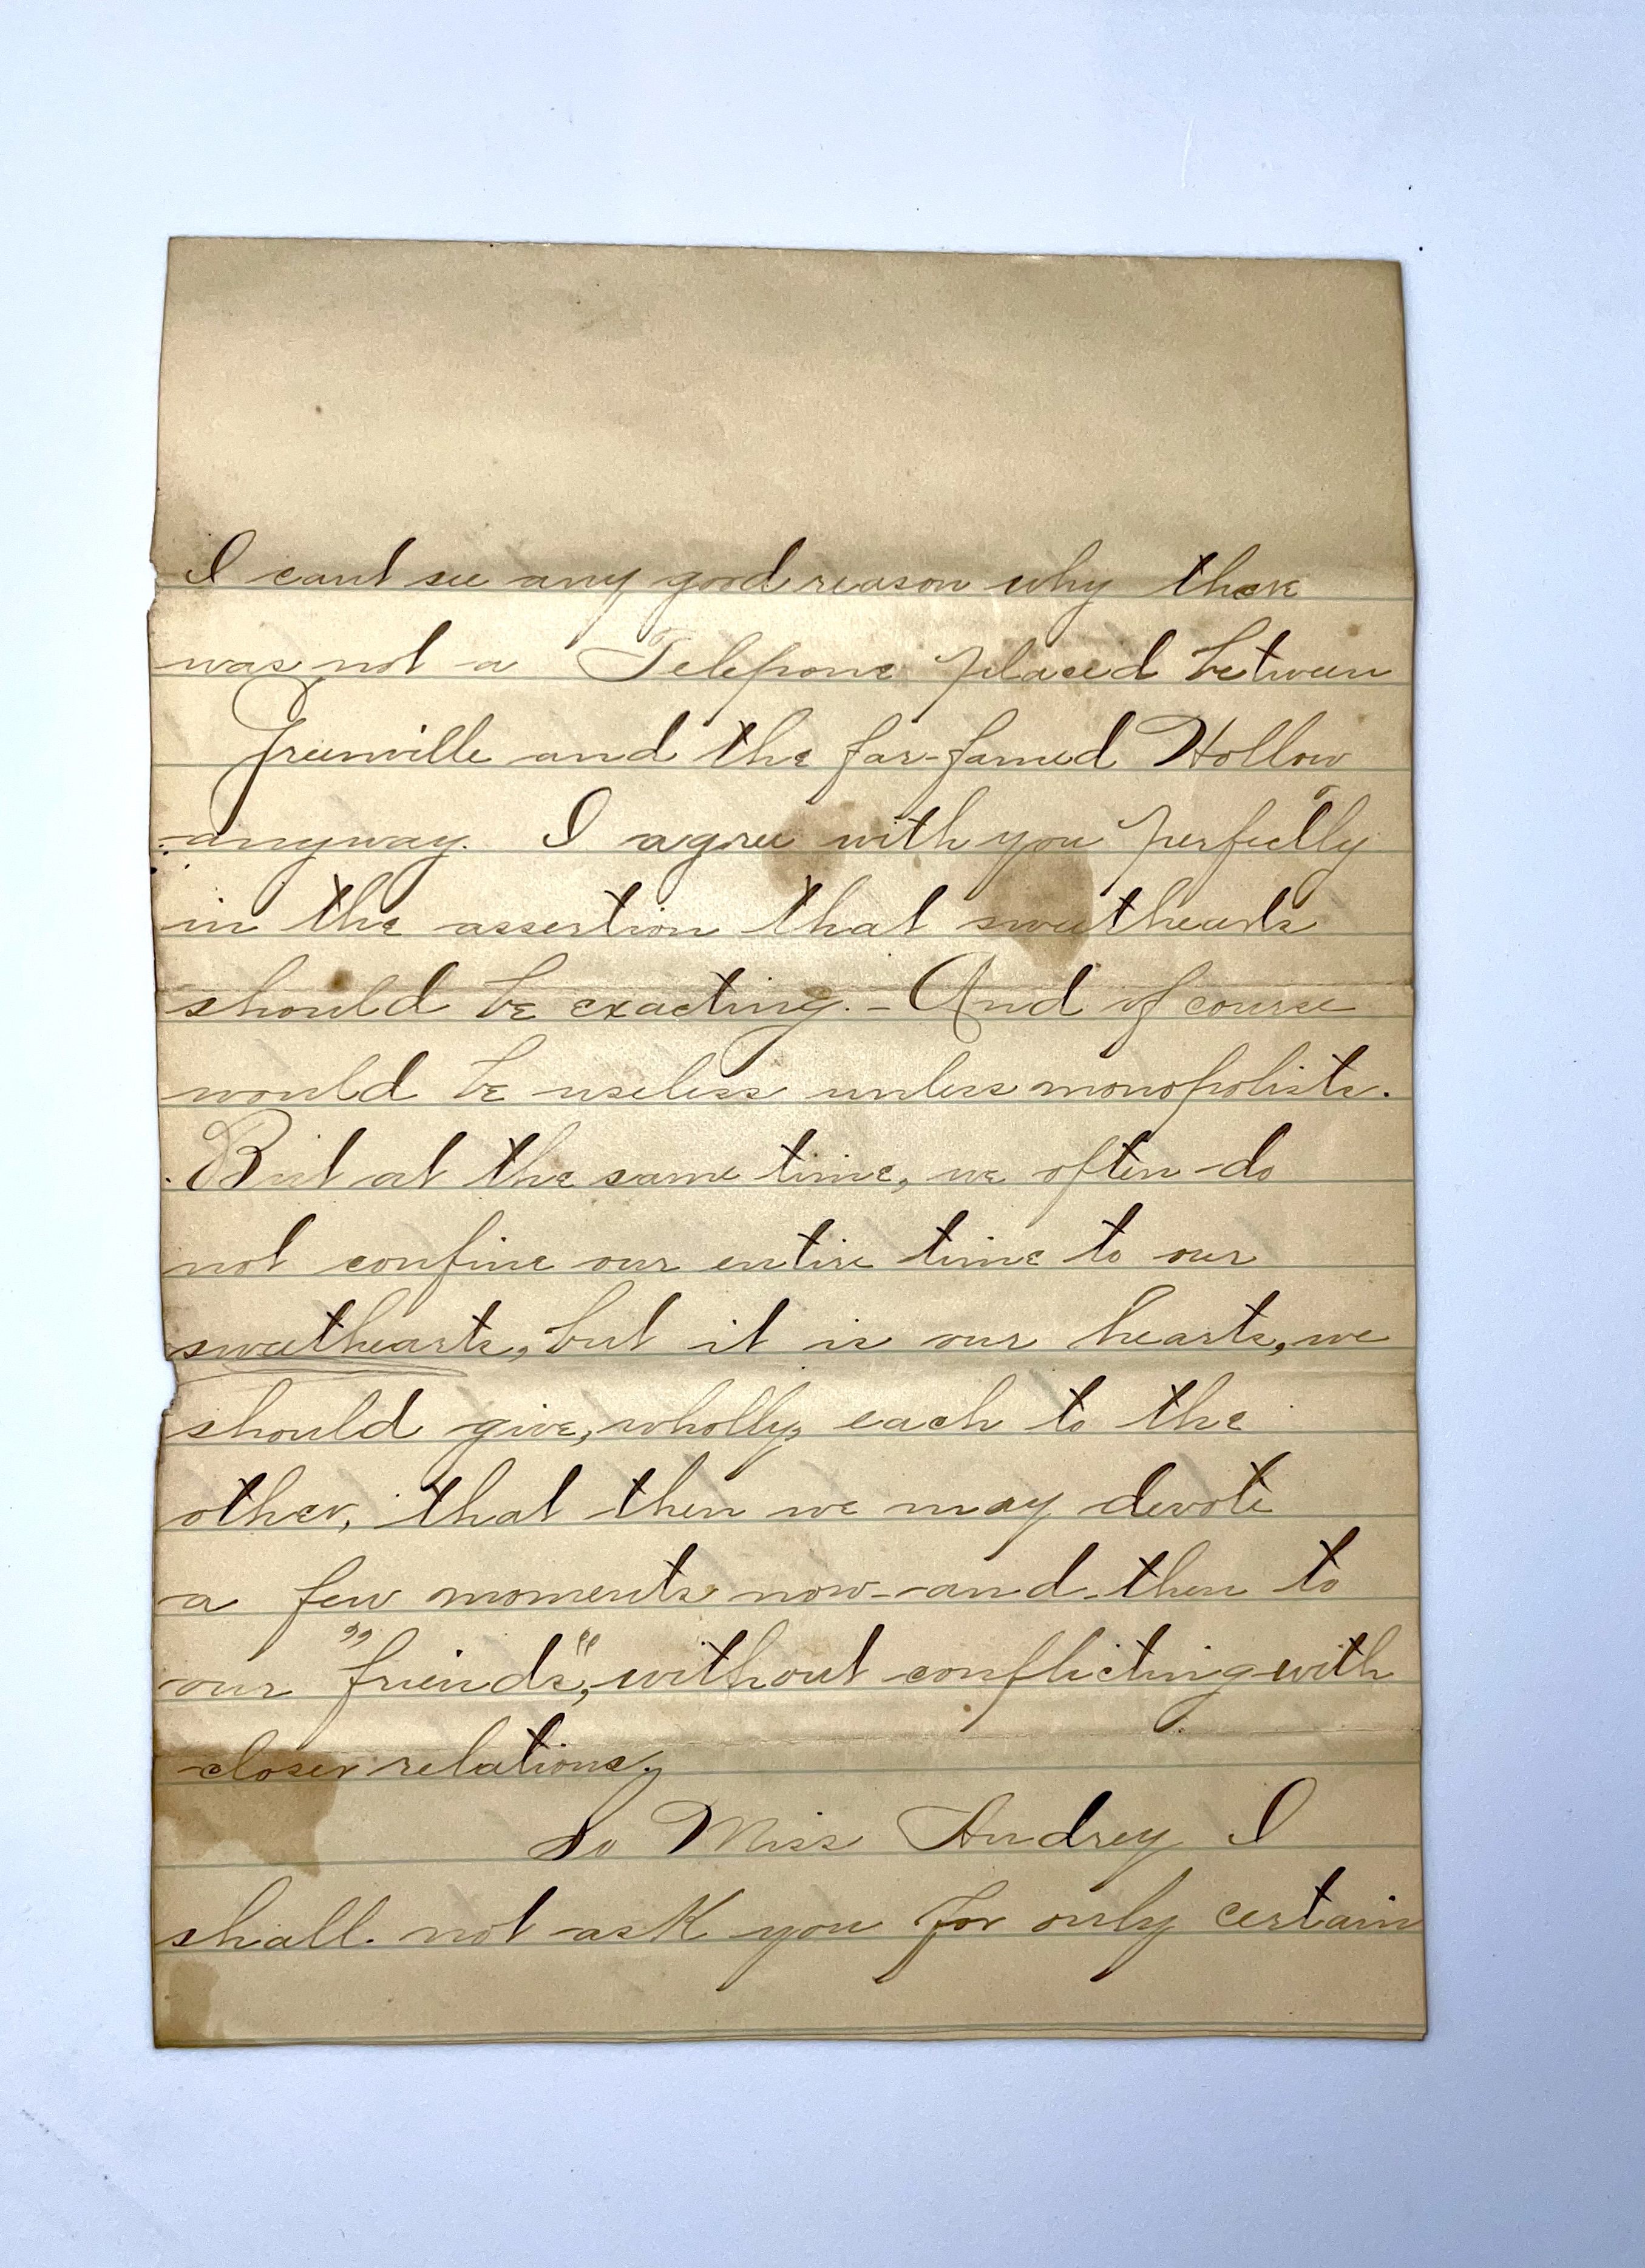 I cant see any good reason why there
was not a Telepone placed between
Greenville and the far-famed Hollow
anyway. I agree with you perfectly
in the assertion that sweethearts
should be exacting. - And of course
would be useless unless monopolists.
But at the same time, we often do
not confine our entire time to our
sweethearts, but it is our hearts, we
should give, wholly, each to the
other, that then we may devote
a few moments now-and-then to
our "friends", without conflicting with
closer relations.
So Miss Audrey I
shall not ask you for only certain